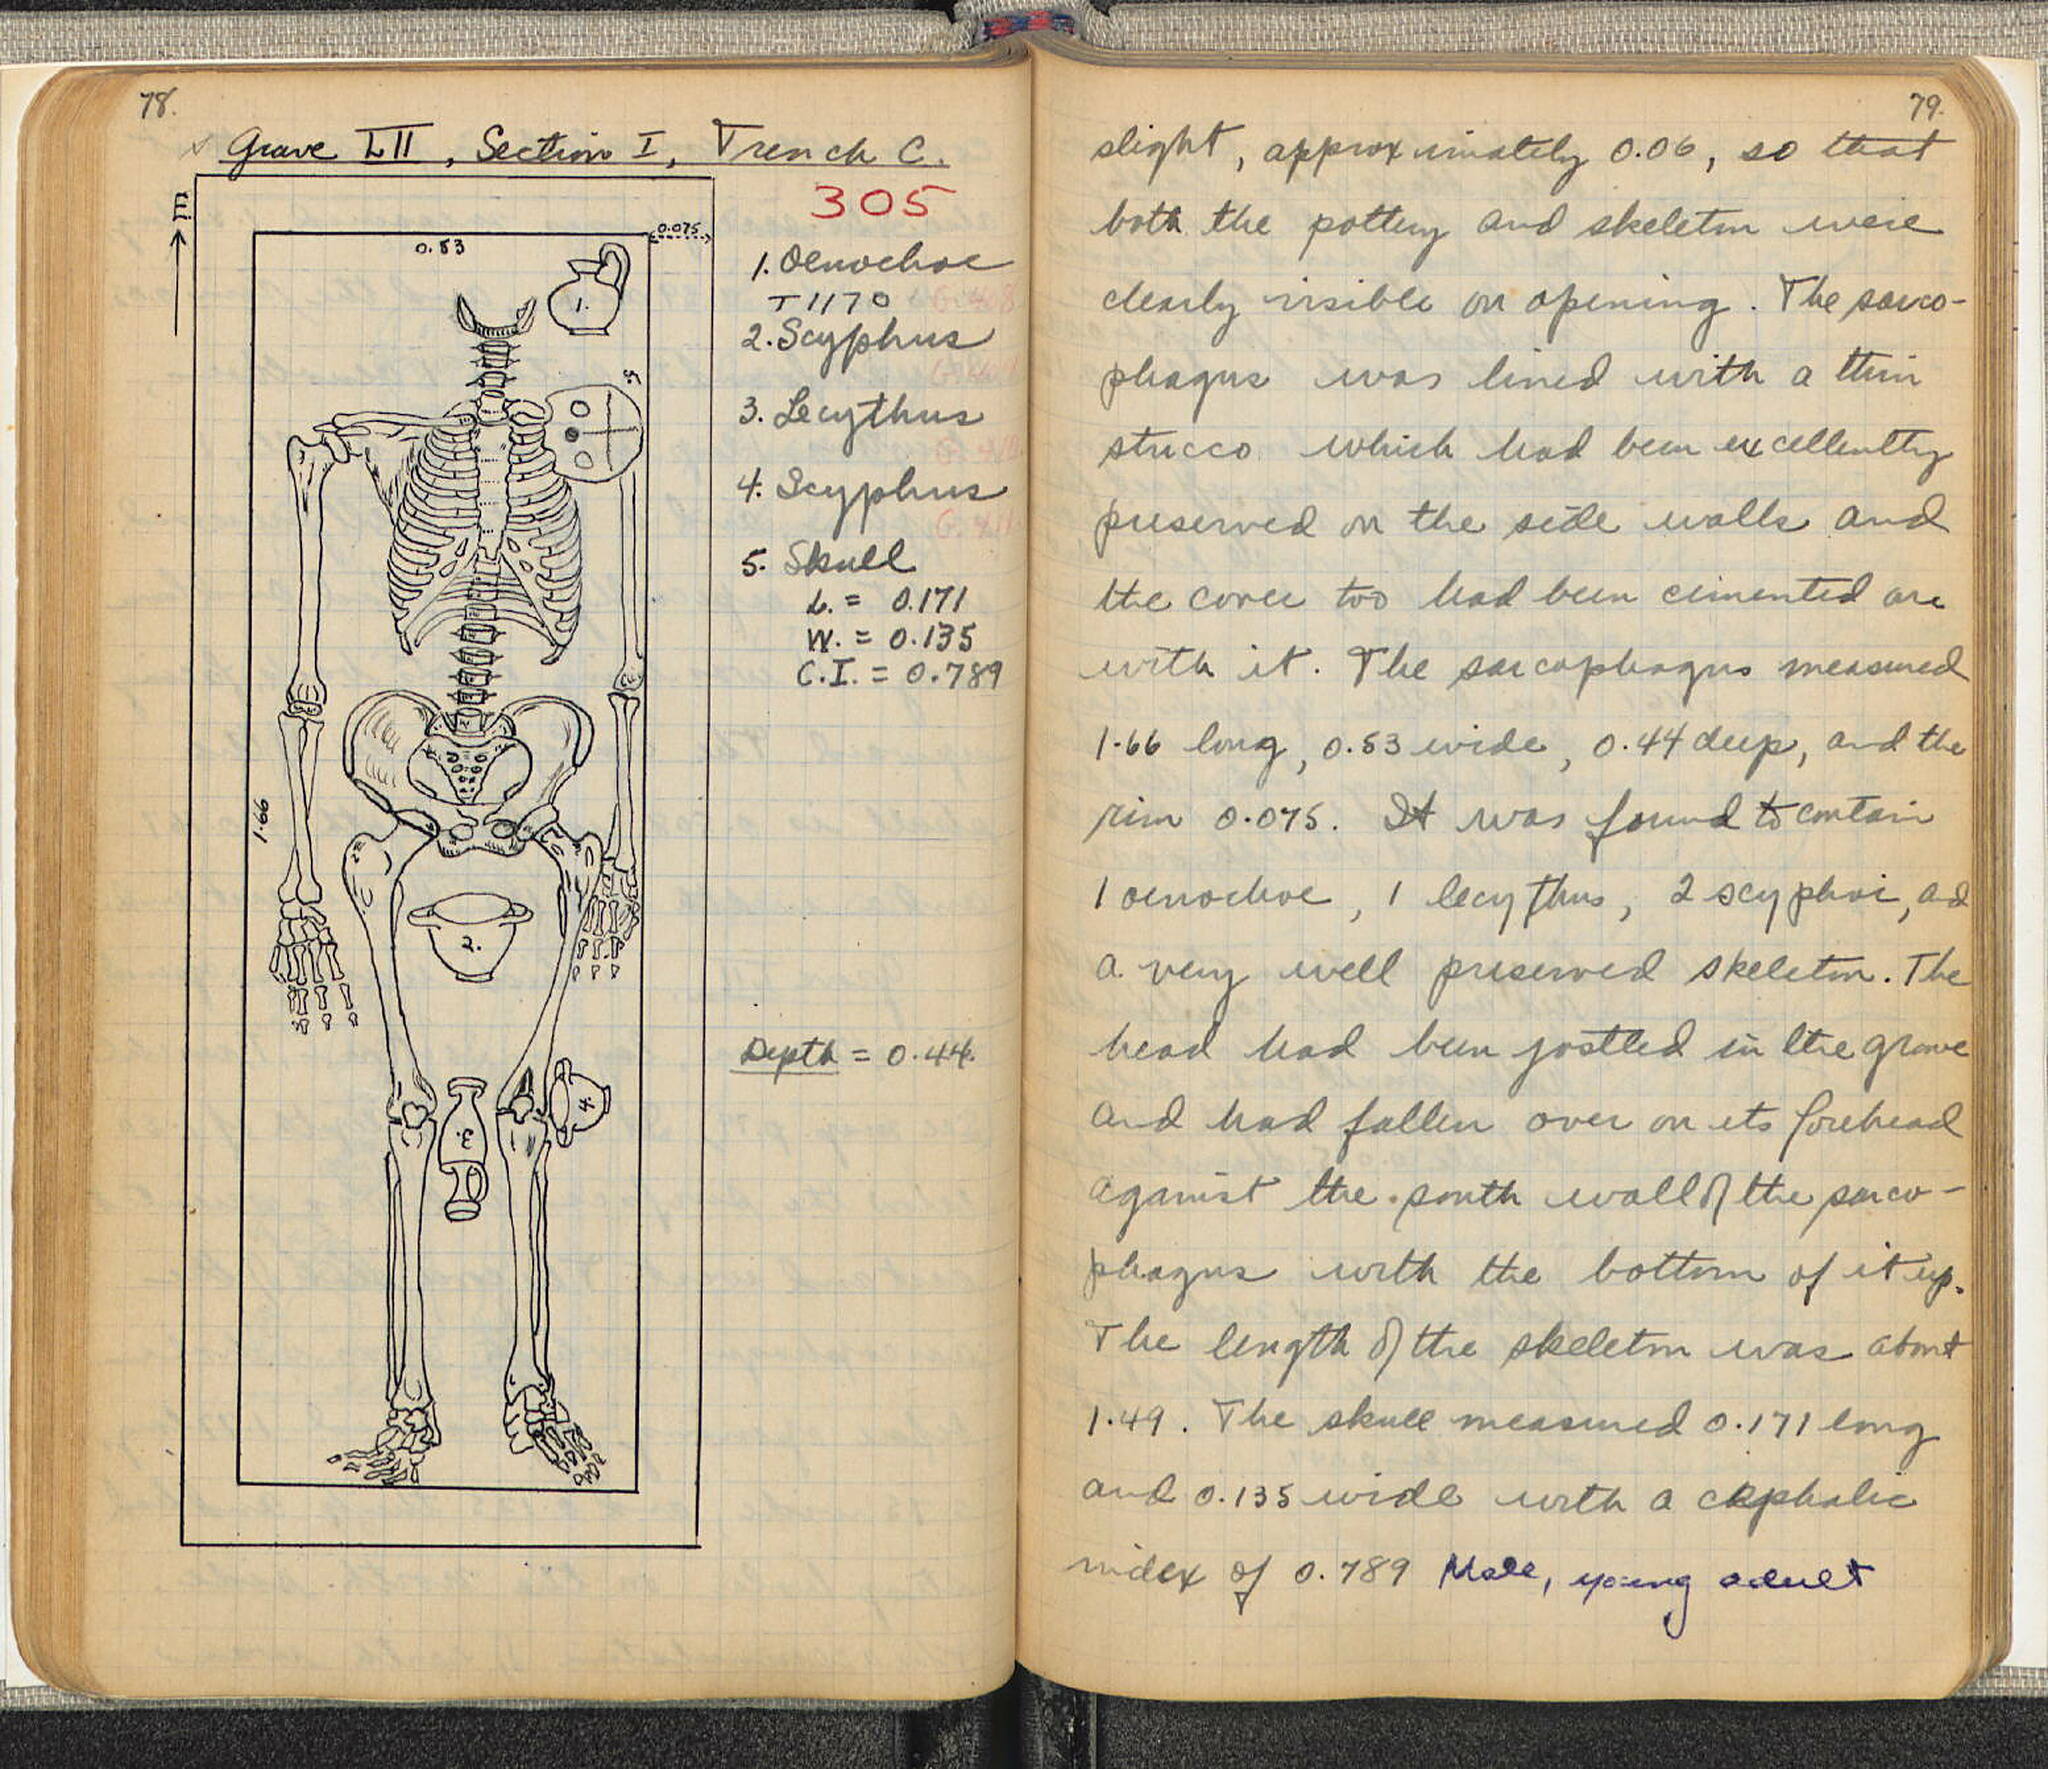 78.
Grave LII, Section I, Trench C.
305
E
0.53
0.075
1.
5.
1.66
2.
3.
4.
1. Oenochoe
T 1170
2. Scyphus
3. Lecythus
4. Scyphus
5. Skull
L. = 0.171
W. = 0.135
C.I. = 0.789
Depth = 0.44.
79.
slight, approximately 0.06, so that
both the pottery and skeleton were
clearly visible on opening. The sarco-
phagus was lined with a thin
stucco which had been excellently
preserved on the side walls and
the cover too had been cimented on
with it. The sarcophagus measured
1.66 long, 0.53 wide, 0.44 deep, and the
rim 0.075. It was found to contain
1 oenochoe, 1 lecythus, 2 scyphoi, and
a very well preserved skeleton. The
head had been jostled in the grave
and had fallen over on its forehead
against the south wall of the sarco-
phagus with the bottom of it up.
The length of the skeleton was about
1.49. The skull measured 0.171 long
and 0.135 wide with a cephalic
index of 0.789 Male, young adult